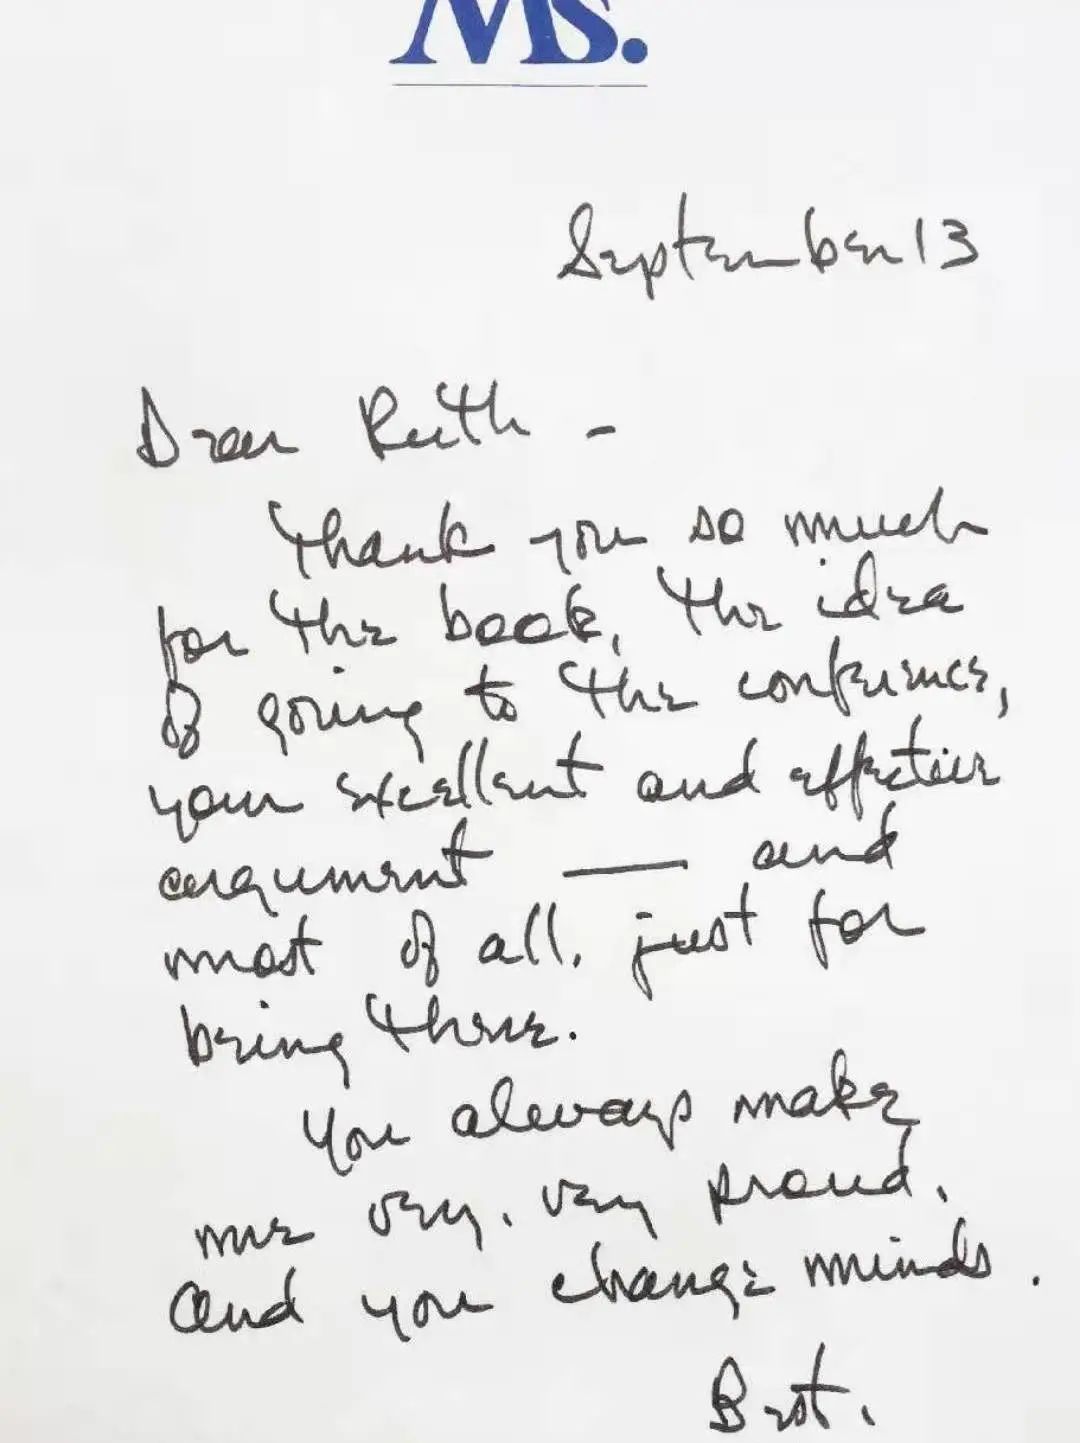 Ms.
September 13
Dear Ruth -
Thank you so much
for the book, the idea
of going to the conference,
your excellent and effective
argument — and
most of all, just for
being there.
You always make
me very, very proud.
And you change minds.
Best,